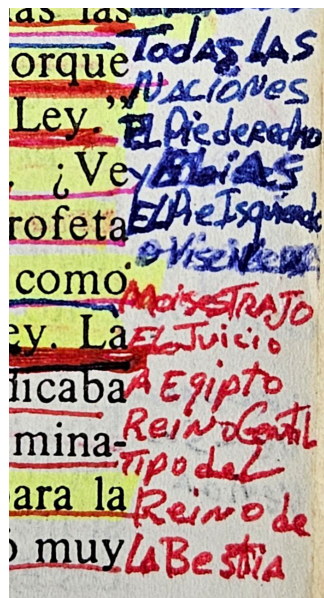 as las
orque
Ley.”
¿Ve
rofeta
como
ey. La
dicaba
mina-
ara la
ó muy
TODAS LAS
NACIONES
EL Pie derecho
y Elias
EL Pie Isquierdo
o Viseversa
MoisesTRAJO
EL Juicio
A Egipto
Reino Gentil
Tipo del
Reino de
La Bestia